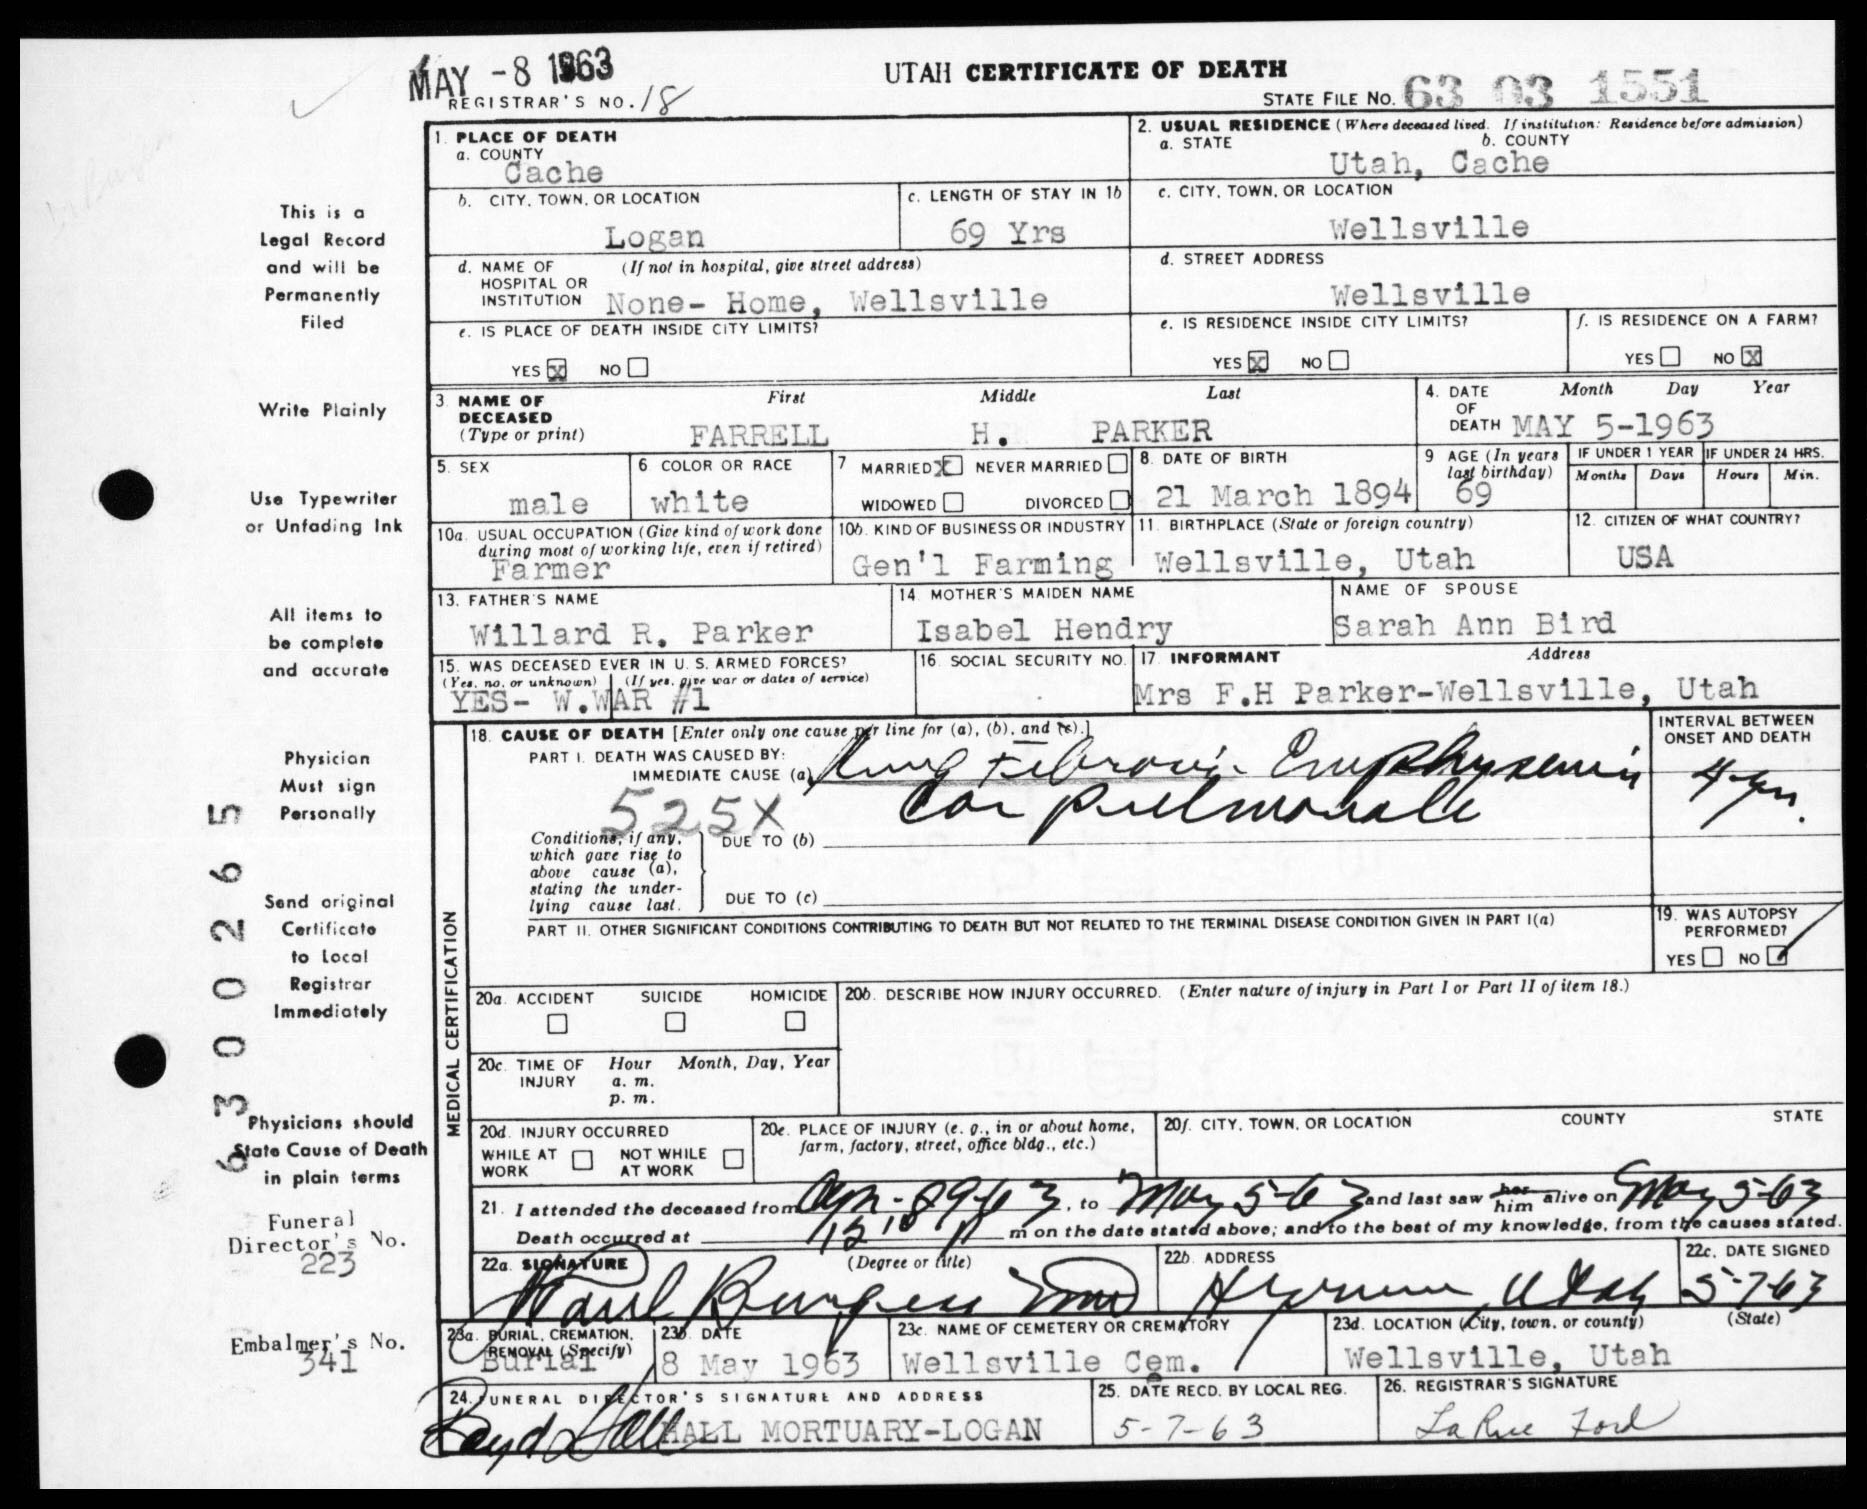 MAY -8 1963
UTAH CERTIFICATE OF DEATH
REGISTRAR'S NO. 18
STATE FILE NO. 63 03 1551
1. PLACE OF DEATH
a. COUNTY
Cache
2. USUAL RESIDENCE (Where deceased lived. If institution: Residence before admission)
a. STATE b. COUNTY
Utah, Cache
b. CITY, TOWN, OR LOCATION
Logan
c. LENGTH OF STAY IN 1b
69 Yrs
c. CITY, TOWN, OR LOCATION
Wellsville
d. NAME OF (If not in hospital, give street address)
HOSPITAL OR
INSTITUTION None- Home, Wellsville
d. STREET ADDRESS
Wellsville
e. IS PLACE OF DEATH INSIDE CITY LIMITS?
YES X NO
e. IS RESIDENCE INSIDE CITY LIMITS?
YES X NO
f. IS RESIDENCE ON A FARM?
YES NO X
3. NAME OF DECEASED (Type or print)
First Middle Last
FARRELL H. PARKER
4. DATE OF DEATH Month Day Year
MAY 5-1963
5. SEX
male
6 COLOR OR RACE
white
7 MARRIED X NEVER MARRIED
WIDOWED DIVORCED
8. DATE OF BIRTH
21 March 1894
9 AGE (In years last birthday)
69
IF UNDER 1 YEAR
Months Days
IF UNDER 24 HRS.
Hours Min.
10a. USUAL OCCUPATION (Give kind of work done
during most of working life, even if retired)
Farmer
10b. KIND OF BUSINESS OR INDUSTRY
Gen'l Farming
11. BIRTHPLACE (State or foreign country)
Wellsville, Utah
12. CITIZEN OF WHAT COUNTRY?
USA
13. FATHER'S NAME
Willard R. Parker
14. MOTHER'S MAIDEN NAME
Isabel Hendry
NAME OF SPOUSE
Sarah Ann Bird
15. WAS DECEASED EVER IN U. S. ARMED FORCES?
(Yes, no, or unknown) (If yes, give war or dates of service)
YES- W.WAR #1
16. SOCIAL SECURITY NO.
17. INFORMANT Address
Mrs F.H Parker-Wellsville, Utah
MEDICAL CERTIFICATION
18. CAUSE OF DEATH [Enter only one cause per line for (a), (b), and (c).]
PART I. DEATH WAS CAUSED BY:
IMMEDIATE CAUSE (a) Lung Fibrosis Emphysemia
Cor pulmonale
525X
INTERVAL BETWEEN ONSET AND DEATH
4 yrs.
Conditions, if any,
which gave rise to
above cause (a),
stating the under-
lying cause last.
DUE TO (b)
DUE TO (c)
PART II. OTHER SIGNIFICANT CONDITIONS CONTRIBUTING TO DEATH BUT NOT RELATED TO THE TERMINAL DISEASE CONDITION GIVEN IN PART I(a)
19. WAS AUTOPSY PERFORMED?
YES NO
20a. ACCIDENT SUICIDE HOMICIDE
20b. DESCRIBE HOW INJURY OCCURRED. (Enter nature of injury in Part I or Part II of item 18.)
20c. TIME OF INJURY Hour Month, Day, Year
a. m.
p. m.
20d. INJURY OCCURRED
WHILE AT WORK NOT WHILE AT WORK
20e. PLACE OF INJURY (e. g., in or about home,
farm, factory, street, office bldg., etc.)
20f. CITY, TOWN, OR LOCATION COUNTY STATE
21. I attended the deceased from , to May 5-63 and last saw her him alive on May 5-63
Death occurred at m on the date stated above; and to the best of my knowledge, from the causes stated.
22a. SIGNATURE (Degree or title)
Paul Burgess MD
22b. ADDRESS
Hyrum, Utah
22c. DATE SIGNED
5-7-63
23a. BURIAL, CREMATION,
REMOVAL (Specify)
Burial
23b. DATE
8 May 1963
23c. NAME OF CEMETERY OR CREMATORY
Wellsville Cem.
23d. LOCATION (City, town, or county) (State)
Wellsville, Utah
24. FUNERAL DIRECTOR'S SIGNATURE AND ADDRESS
Boyd Hall HALL MORTUARY-LOGAN
25. DATE RECD. BY LOCAL REG.
5-7-63
26. REGISTRAR'S SIGNATURE
LaRue Ford
This is a
Legal Record
and will be
Permanently
Filed
Write Plainly
Use Typewriter
or Unfading Ink
All items to
be complete
and accurate
Physician
Must sign
Personally
Send original
Certificate
to Local
Registrar
Immediately
Physicians should
State Cause of Death
in plain terms
Funeral
Director's No.
223
Embalmer's No.
341
63 00265